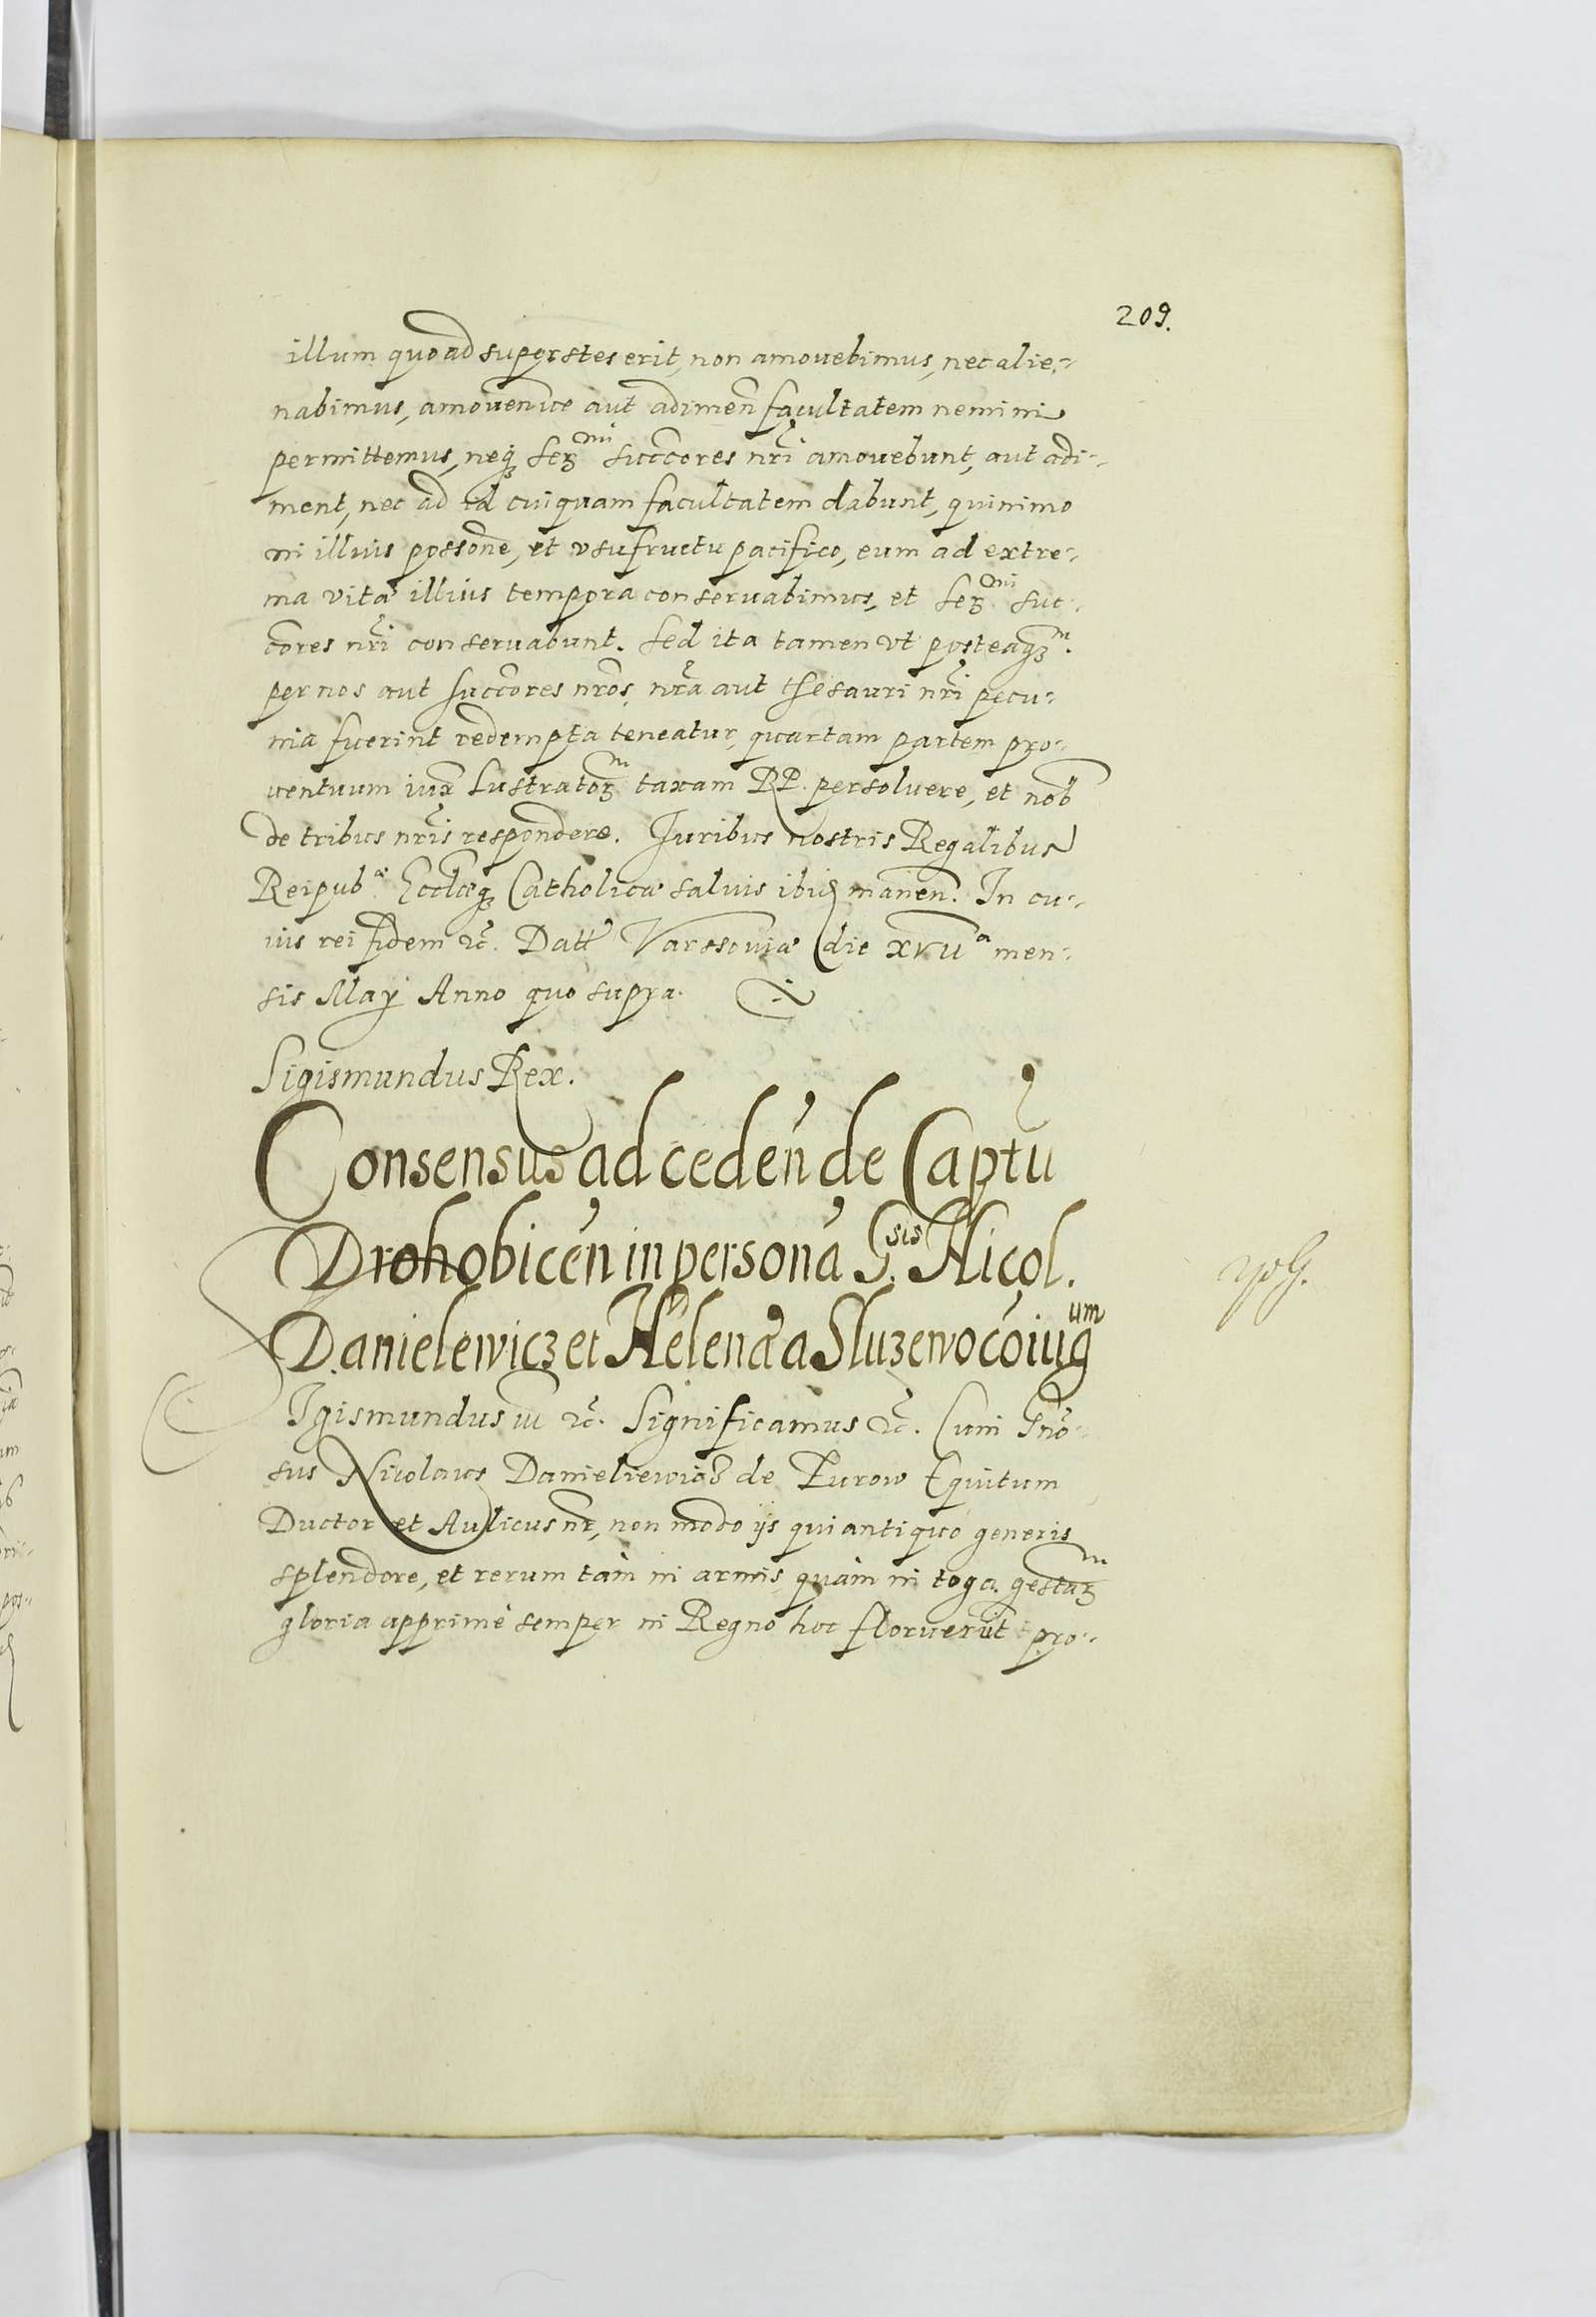 209.
illum quoad superstes erit, non amouebimus, nec alie-
nabimus, amouendice aut adimen̄ facultatem nemini
permittemus, neqꝫ Serꝫmi succores nr̄i amouebunt, aut adi-
ment, nec ad id cuiquam facultatem dabunt, quinimo
in illius posson̄e, et vsufructu pacifico, eum ad extre-
ma vitæ illius tempora conseruabimus, et Serꝫmi suc-
cores nr̄i conseruabunt. Sed ita tamen vt posteaqꝫm.
per nos aut succores nr̄os, nr̄a aut thesauri nr̄i pecu-
nia fuerint redempta teneatur, quartam partem pro-
uentuum iux̄ Lustratorꝫm taxam RP. persoluere, et nob̄
de tribus nr̄is respondere. Juribus nostris Regalibus
Reipubæ. Eccl̄æqꝫ Catholicæ saluis ibid manen̄. In cu-
ius rei fidem ꝛc̄. Datt Varssouiæ die xvııa men-
sis May Anno quo supra.
Sigismundus Rex.
Consensus ad ceden̄ de Captū
Drohobicen̄ in personā G.sis Nicol.
Danielewicz et Helenæ a Sluzewo cōiugum
Sigismundus iii ꝛc̄. Significamus ꝛc̄. Cum Gn̄o-
sus Nicolaus Danieliewicz de Zurow Equitum
Ductor et Aulicus nr̄, non modo ijs qui antiquo generis
splendore, et rerum tam in armis quàm in toga. gestarꝫm
gloria apprimè semper in Regno hoc floruerūt pro-